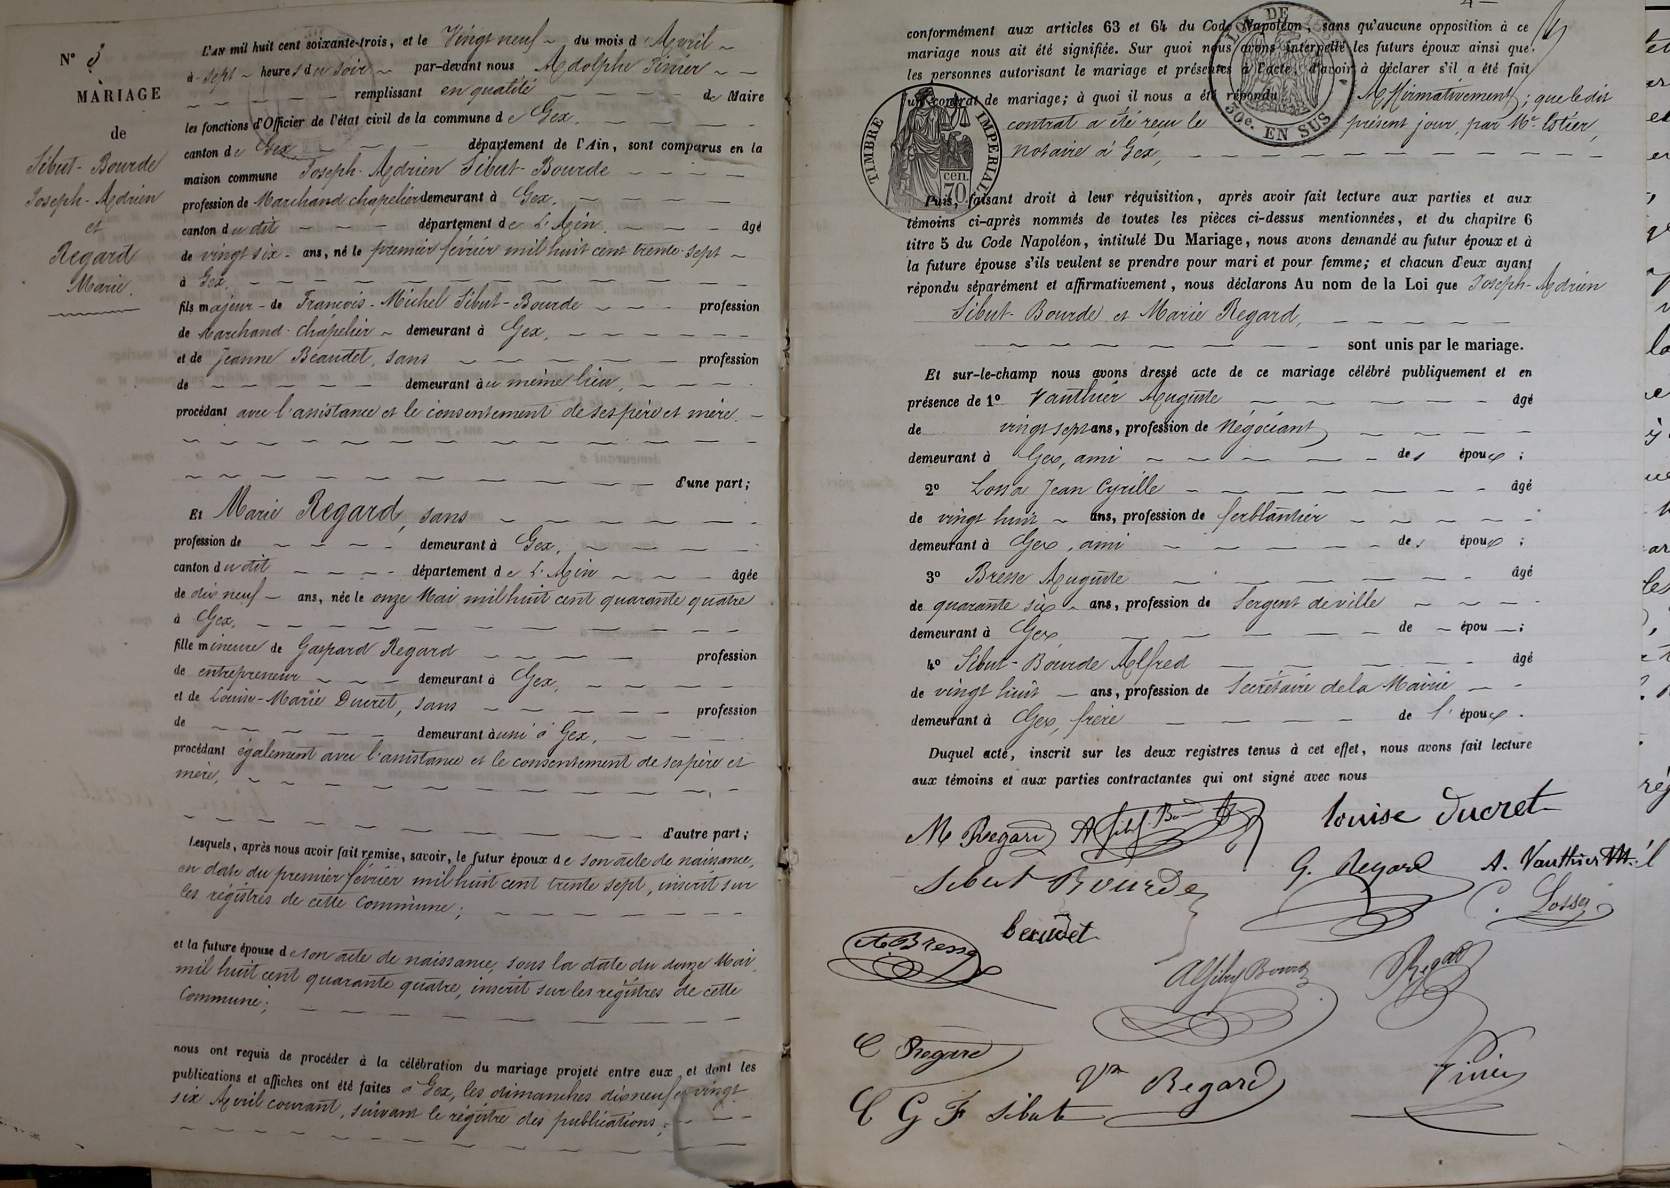 N° 8
MARIAGE
de
Sibut-Bourde
Joseph-Adrien
et
Regard
Marie.
L'AN mil huit cent soixante-trois, et le Vingt neuf du mois d'Avril
à sept heures du soir par-devant nous Adolphe Pinier
remplissant en qualité de Maire
les fonctions d'Officier de l'état civil de la commune de Gex.
canton de Gex département de l'Ain, sont comparus en la
maison commune Joseph-Adrien Sibut-Bourde
profession de Marchand chapelier demeurant à Gex,
canton dudit département de L'Ain âgé
de vingt six ans, né le premier février mil huit cent trente-sept
à Gex,
fils majeur de François-Michel Sibut-Bourde profession
de Marchand-chapelier demeurant à Gex,
et de Jeanne Beaudet, sans profession
de demeurant au même lieu,
procédant avec l'assistance et le consentement de ses père et mère
d'une part;
Et Marie Regard, sans
profession de demeurant à Gex,
canton dudit département de L'Ain âgée
de dix neuf ans, née le onze Mai mil huit cent quarante quatre
à Gex,
fille mineure de Gaspard Regard profession
de entrepreneur demeurant à Gex,
et de Louise-Marie Ducret, sans profession
de demeurant à Gex,
procédant également avec l'assistance et le consentement de ses père et
mère,
d'autre part;
Lesquels, après nous avoir fait remise, savoir, le futur époux de son acte de naissance,
en date du premier février mil huit cent trente sept, inscrit sur
les régistres de cette Commune;
et la future épouse de son acte de naissance, sous la date du douze Mai
mil huit cent quarante quatre, inscrit sur les régistres de cette
Commune;
nous ont requis de procéder à la célébration du mariage projeté entre eux et dont les
publications et affiches ont été faites à Gex, les dimanches dix neuf et vingt
six Avril courant, suivant le régistre des publications;
conformément aux articles 63 et 64 du Code Napoléon, sans qu'aucune opposition à ce
mariage nous ait été signifiée. Sur quoi nous avons interpellé les futurs époux ainsi que
les personnes autorisant le mariage et présentes à l'acte, d'avoir à déclarer s'il a été fait
un contrat de mariage; à quoi il nous a été répondu Affirmativement; que ledit
contrat a été reçu le présent jour, par Me Estier,
Notaire à Gex,
TIMBRE IMPERIAL
cen. 70
50e. EN SUS
Puis, faisant droit à leur réquisition, après avoir fait lecture aux parties et aux
témoins ci-après nommés de toutes les pièces ci-dessus mentionnées, et du chapitre 6
titre 5 du Code Napoléon, intitulé Du Mariage, nous avons demandé au futur époux et à
la future épouse s'ils veulent se prendre pour mari et pour femme; et chacun d'eux ayant
répondu séparément et affirmativement, nous déclarons Au nom de la Loi que Joseph-Adrien
Sibut-Bourde et Marie Regard,
sont unis par le mariage.
Et sur-le-champ nous avons dressé acte de ce mariage célébré publiquement et en
présence de 1° Vauthier Auguste âgé
de vingt sept ans, profession de Négociant
demeurant à Gex, ami des époux;
2° Lossa Jean Cyrille âgé
de vingt huit ans, profession de ferblantier
demeurant à Gex, ami des époux;
3° Bresse Auguste âgé
de quarante six ans, profession de Sergent de ville
demeurant à Gex de épou;
4° Sibut-Bourde Alfred âgé
de vingt huit ans, profession de Secrétaire de la Mairie
demeurant à Gex, frère de l'époux.
Duquel acte, inscrit sur les deux registres tenus à cet effet, nous avons fait lecture
aux témoins et aux parties contractantes qui ont signé avec nous
M Regard louise Ducret
Sibut Bourde G. Regard A. Vauthier
C. Lossa
A Bresse beaudet
C Regard Vn Regard Pinier
C G F Sibut